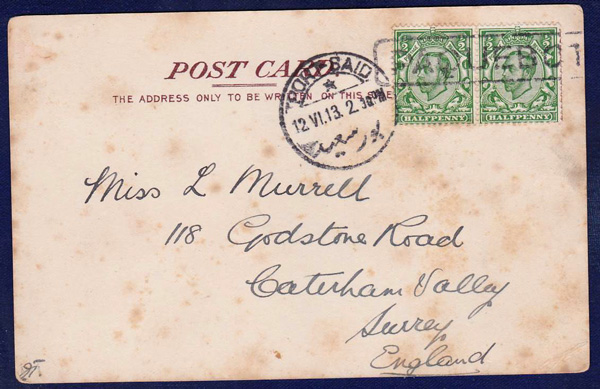 POST CARD
THE ADDRESS ONLY TO BE WRITTEN ON THIS SIDE
PORT-SAID
12.VI.13. 2
بور سعيد
PAQUEBOT
HALFPENNY
HALFPENNY
Miss L Murrell
118 Godstone Road
Caterham Valley
Surrey
England